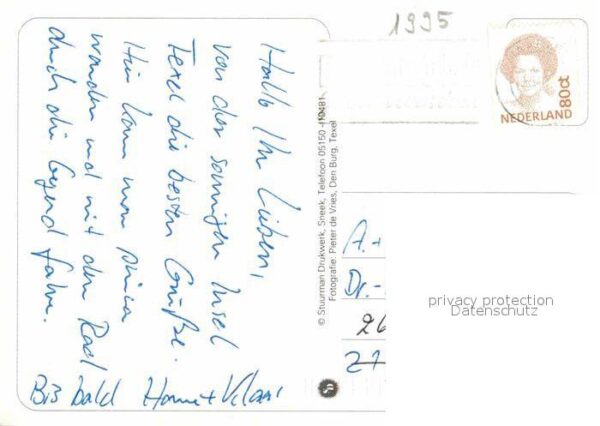 1995
NEDERLAND
80ct
Hallo Ihr Lieben,
von der sonnigen Insel
Texel die besten Grüße.
Hier kann man prima
wandern und mit dem Rad
durch die Gegend fahren.
Bis bald
© Stuurman Drukwerk, Sneek, Telefoon 05150-10481
Fotografie: Pieter de Vries, Den Burg, Texel
A. +
Dr.-
26
27
privacy protection
Datenschutz